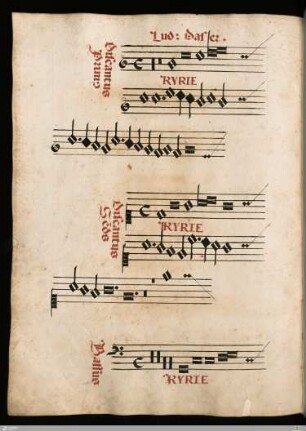 Lud: Dasser.
Discantus
primus
KYRIE
Discantus
Secds
KYRIE
Bassus
KYRIE